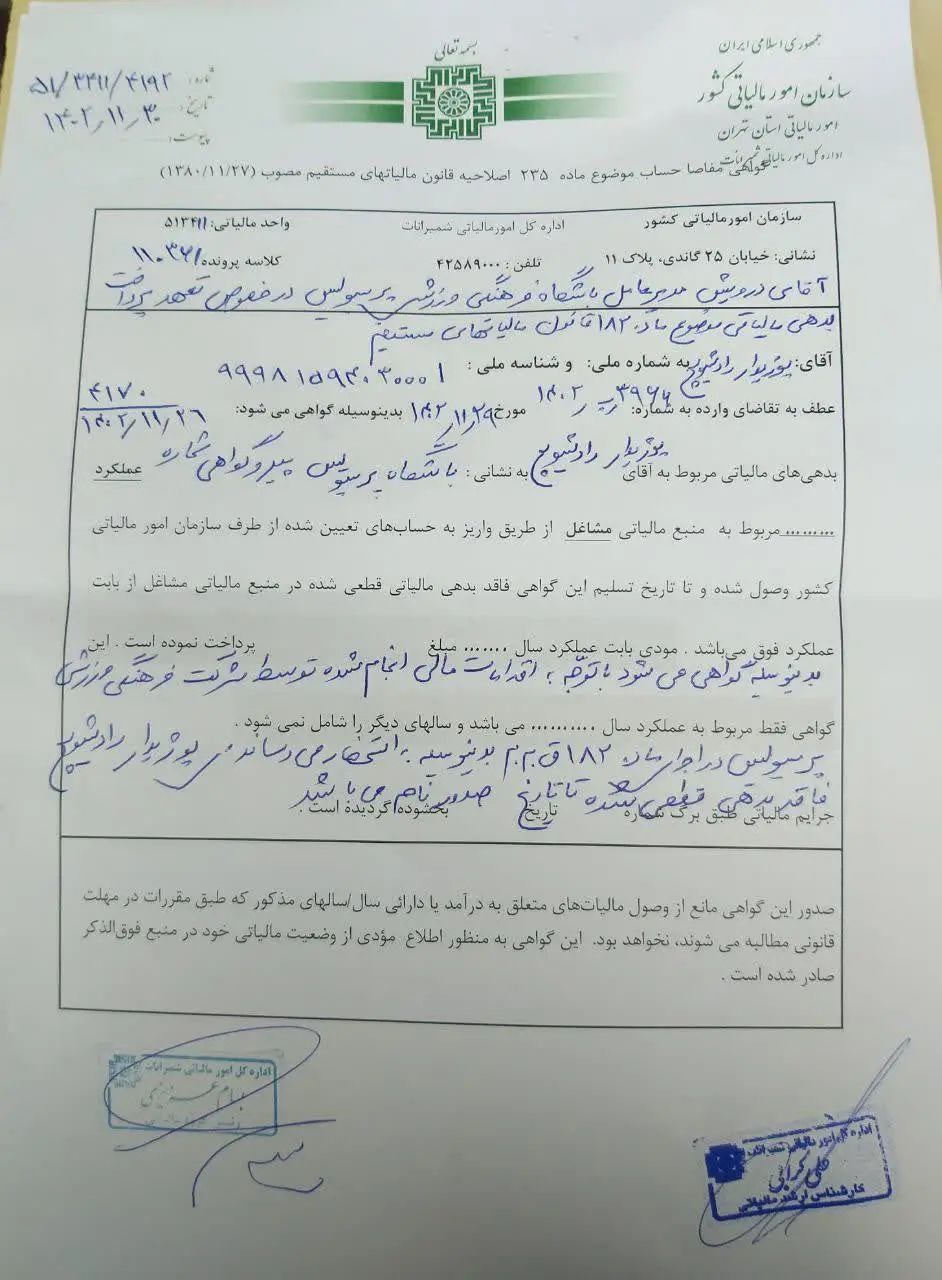 بسمه تعالی
جمهوری اسلامی ایران
سازمان امور مالیاتی کشور
امور مالیاتی استان تهران
اداره کل امور مالیاتی شمیرانات
شماره: ۵۱/۳۴۱۱/۴۱۹۲
تاریخ: ۱۴۰۲/۱۱/۳۰
پیوست:
گواهی مفاصا حساب موضوع ماده ۲۳۵ اصلاحیه قانون مالیاتهای مستقیم مصوب (۱۳۸۰/۱۱/۲۷)
سازمان امورمالیاتی کشور اداره کل امورمالیاتی شمیرانات واحد مالیاتی: ۵۱۳۴۱۱
نشانی: خیابان ۲۵ گاندی، پلاک ۱۱ تلفن: ۴۲۵۸۹۰۰۰ کلاسه پرونده
آقای درویش مدیرعامل باشگاه فرهنگی ورزشی پرسپولیس در خصوص تعهد پرداخت
بدهی مالیاتی موضوع ماده ۱۸۲ قانون مالیاتهای مستقیم
آقای: بوژیدار رادشیویچ به شماره ملی: و شناسه ملی:
عطف به تقاضای وارده به شماره: مورخ ۱۴۰۲/۱۱/۲۹ بدینوسیله گواهی می شود: ۴۱۷۰
۱۴۰۲/۱۱/۲۶
بدهی‌های مالیاتی مربوط به آقای بوژیدار رادشیویچ به نشانی: باشگاه پرسپولیس پیرو گواهی شماره عملکرد
......... مربوط به منبع مالیاتی مشاغل از طریق واریز به حساب‌های تعیین شده از طرف سازمان امور مالیاتی
کشور وصول شده و تا تاریخ تسلیم این گواهی فاقد بدهی مالیاتی قطعی شده در منبع مالیاتی مشاغل از بابت
عملکرد فوق می‌باشد . مودی بابت عملکرد سال ....... مبلغ پرداخت نموده است . این
بدینوسیله گواهی می شود با توجه به اقدامات مالی انجام شده توسط شرکت فرهنگی ورزشی
گواهی فقط مربوط به عملکرد سال .......... می باشد و سالهای دیگر را شامل نمی شود .
پرسپولیس در اجرای ماده ۱۸۲ ق.م.م بدینوسیله به استحضار می رساند بوژیدار رادشیویچ
فاقد بدهی قطعی شده تا تاریخ صدور نامه می باشد
جرایم مالیاتی طبق برگ شماره تاریخ بخشوده گردیده است .
صدور این گواهی مانع از وصول مالیات‌های متعلق به درآمد یا دارائی سال/سالهای مذکور که طبق مقررات در مهلت
قانونی مطالبه می شوند، نخواهد بود. این گواهی به منظور اطلاع مؤدی از وضعیت مالیاتی خود در منبع فوق‌الذکر
صادر شده است .
اداره کل امور مالیاتی شمیرانات
اداره کل امور مالیاتی شمیرانات
کارشناس ارشد مالیاتی